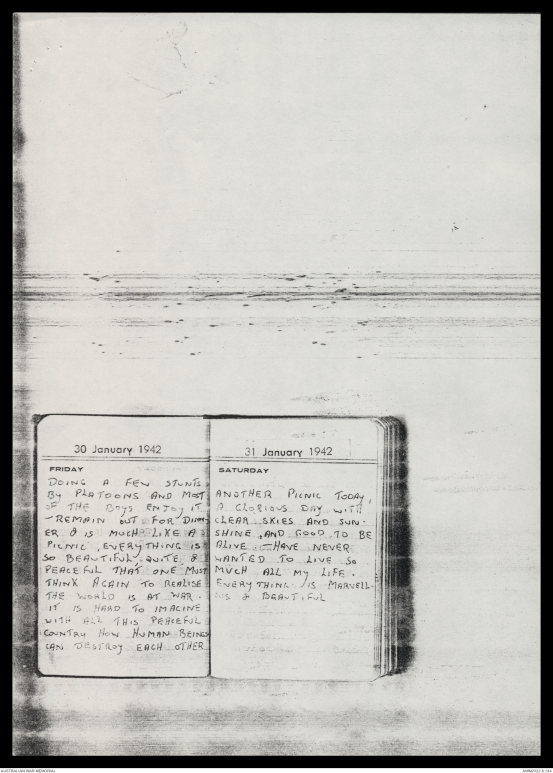 30 January 1942
FRIDAY
DOING A FEW STUNTS
BY PLATOONS AND MOST
OF THE BOYS ENJOY IT
-REMAIN OUT FOR DINN
ER & IS MUCH LIKE A
PICNIC, EVERYTHING IS
SO BEAUTIFUL, QUITE &
PEACEFUL THAT ONE MUST
THINK AGAIN TO REALISE
THE WORLD IS AT WAR.
IT IS HARD TO IMAGINE
WITH ALL THIS PEACEFUL
COUNTRY HOW HUMAN BEINGS
CAN DESTROY EACH OTHER
31 January 1942
SATURDAY
ANOTHER PICNIC TODAY,
A GLORIOUS DAY WITH
CLEAR SKIES AND SUN-
SHINE, AND GOOD TO BE
ALIVE -HAVE NEVER
WANTED TO LIVE SO
MUCH ALL MY LIFE.
EVERYTHING IS MARVELL-
OUS & BEAUTIFUL
AUSTRALIAN WAR MEMORIAL